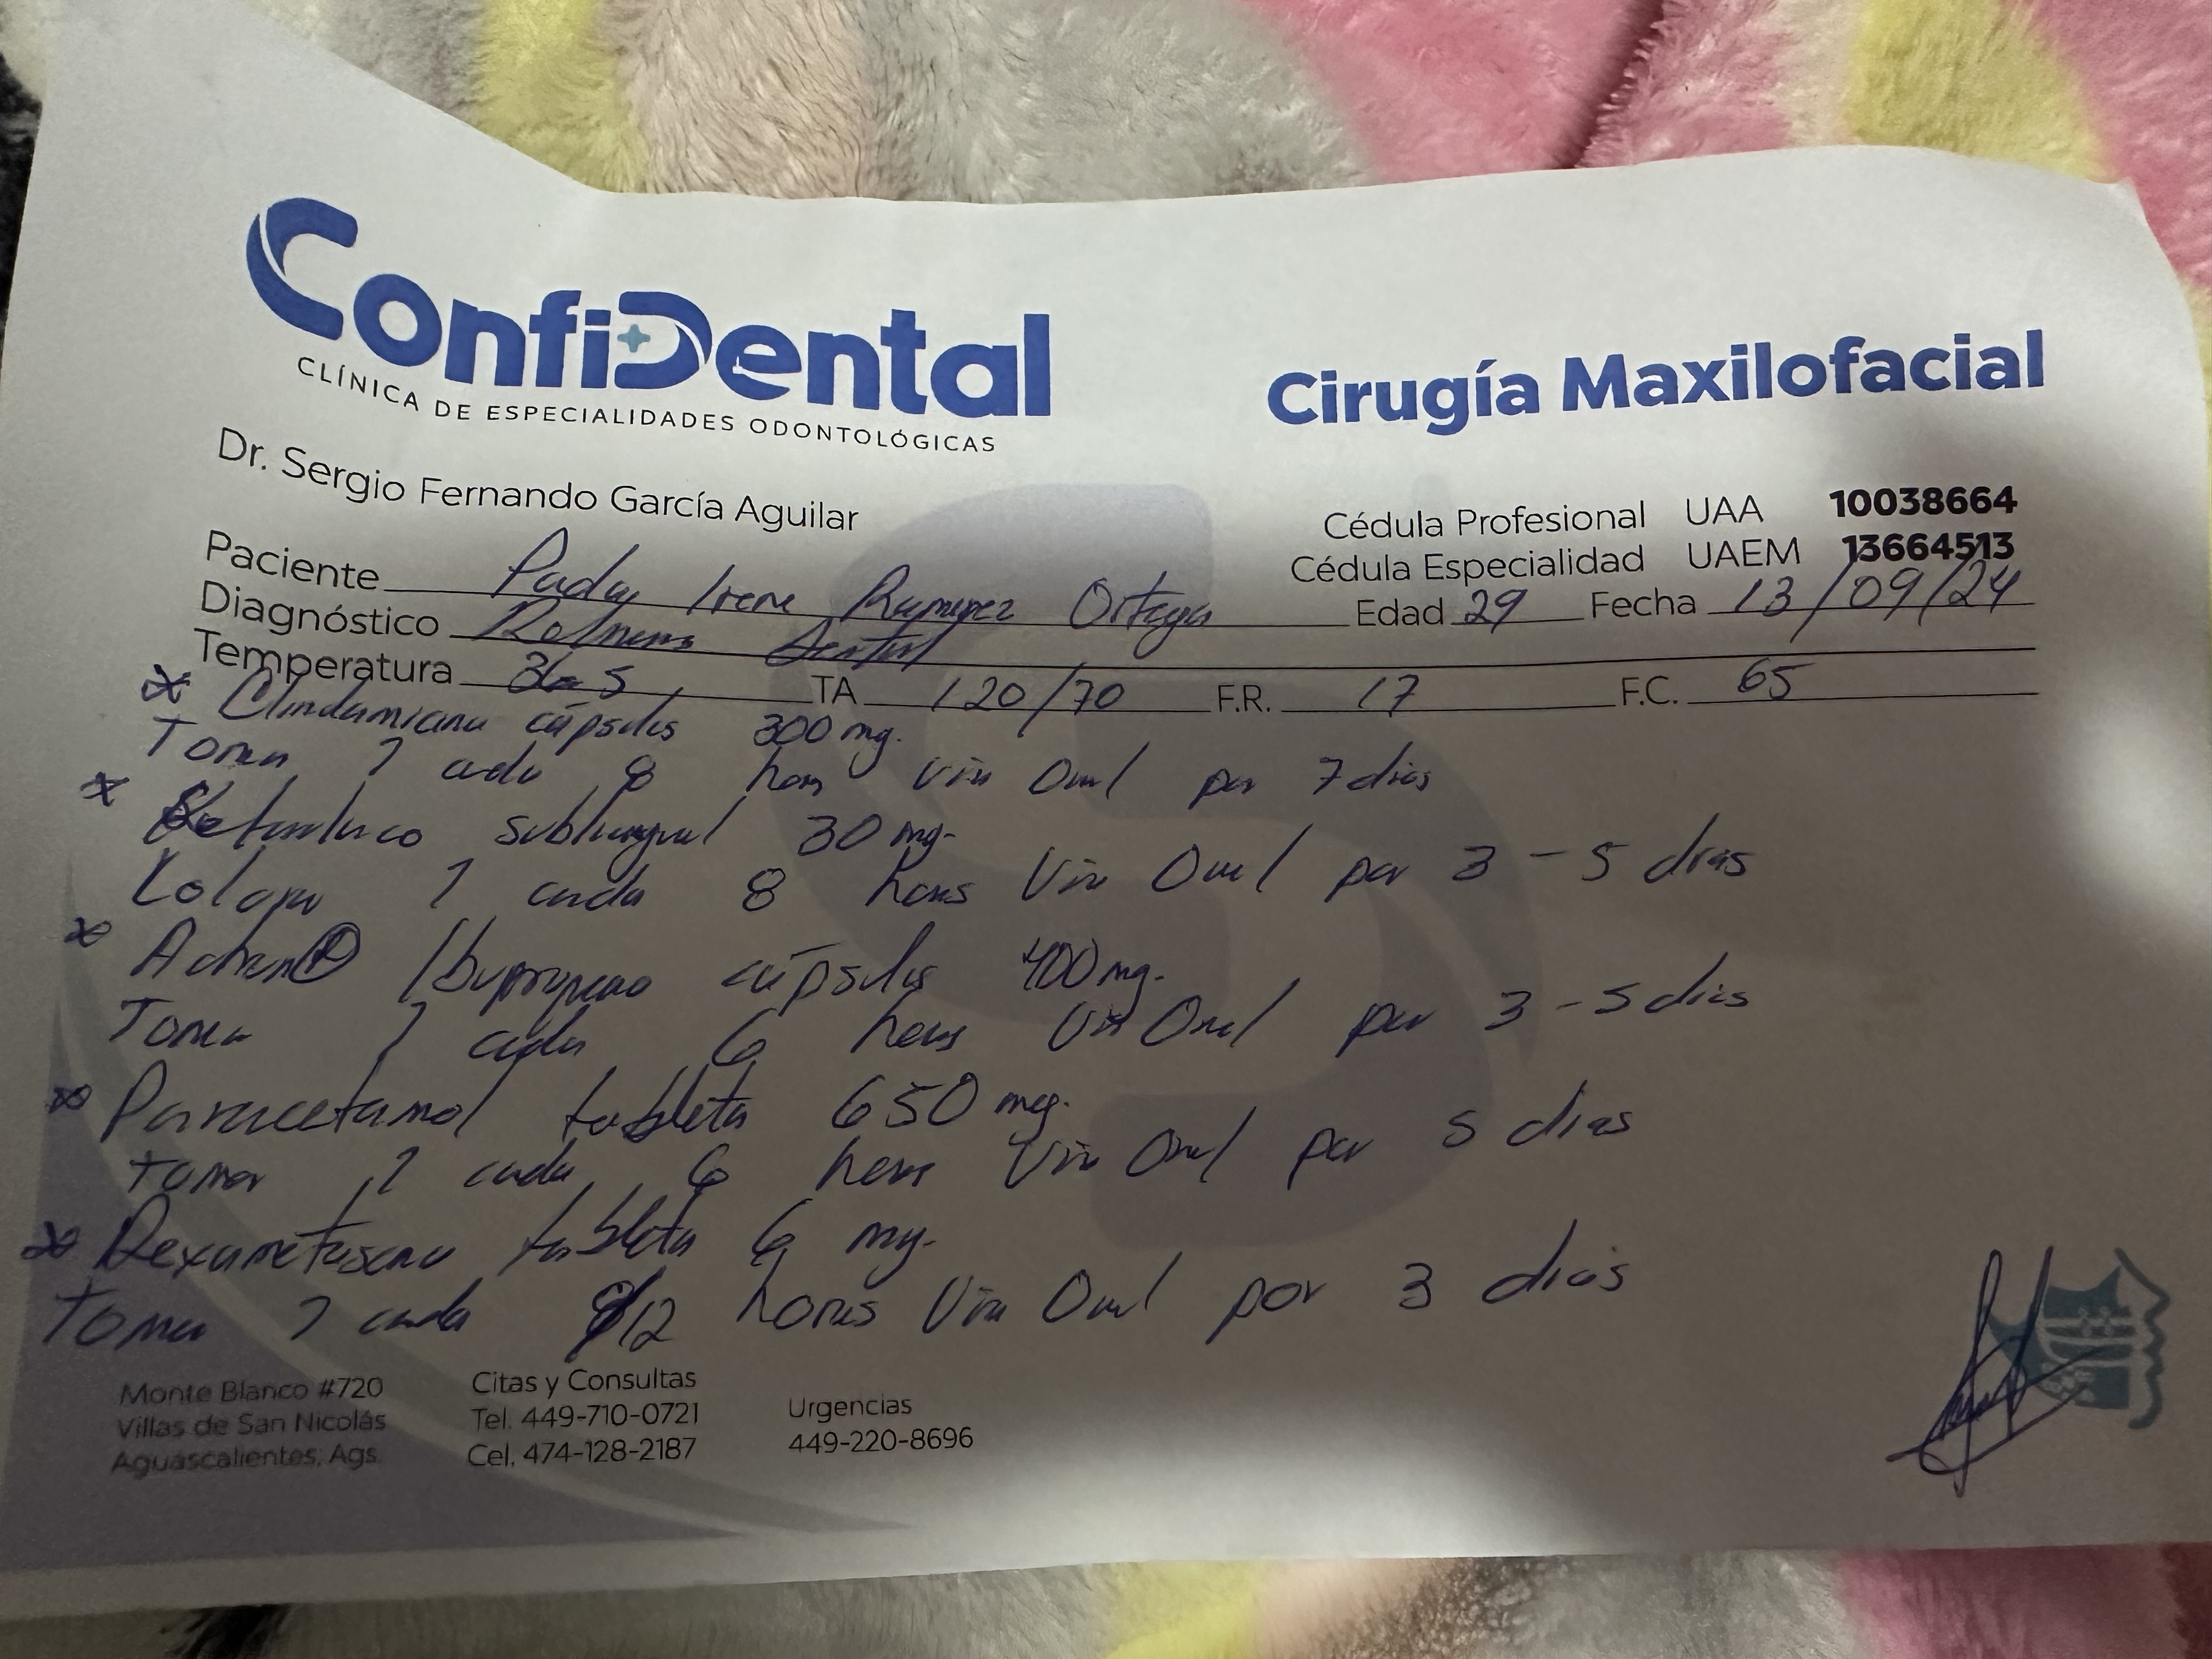 ConfiDental
CLÍNICA DE ESPECIALIDADES ODONTOLÓGICAS
Cirugía Maxilofacial
Dr. Sergio Fernando García Aguilar
Cédula Profesional UAA 10038664
Cédula Especialidad UAEM 13664513
Paciente Irene Ramirez Ortega Edad 29 Fecha 13/09/24
Diagnóstico Dental
Temperatura 36.5 TA 120/70 F.R. 17 F.C. 65
* Clindamicina cápsulas 300 mg.
Tomar 1 cada 8 horas Vía Oral por 7 dias
* Ketorolaco sublingual 30 mg.
Colocar 1 cada 8 horas Vía Oral por 3 - 5 dias
* Actron® Ibuprofeno cápsulas 400 mg.
Tomar 1 cada 6 horas Vía Oral por 3 - 5 dias
* Paracetamol tableta 650 mg.
tomar 1 cada 6 horas Vía Oral por 5 dias
* Dexametasona tableta 6 mg.
Tomar 1 cada 12 horas Vía Oral por 3 dias
Monte Blanco #720
Villas de San Nicolás
Aguascalientes, Ags.
Citas y Consultas
Tel. 449-710-0721
Cel. 474-128-2187
Urgencias
449-220-8696